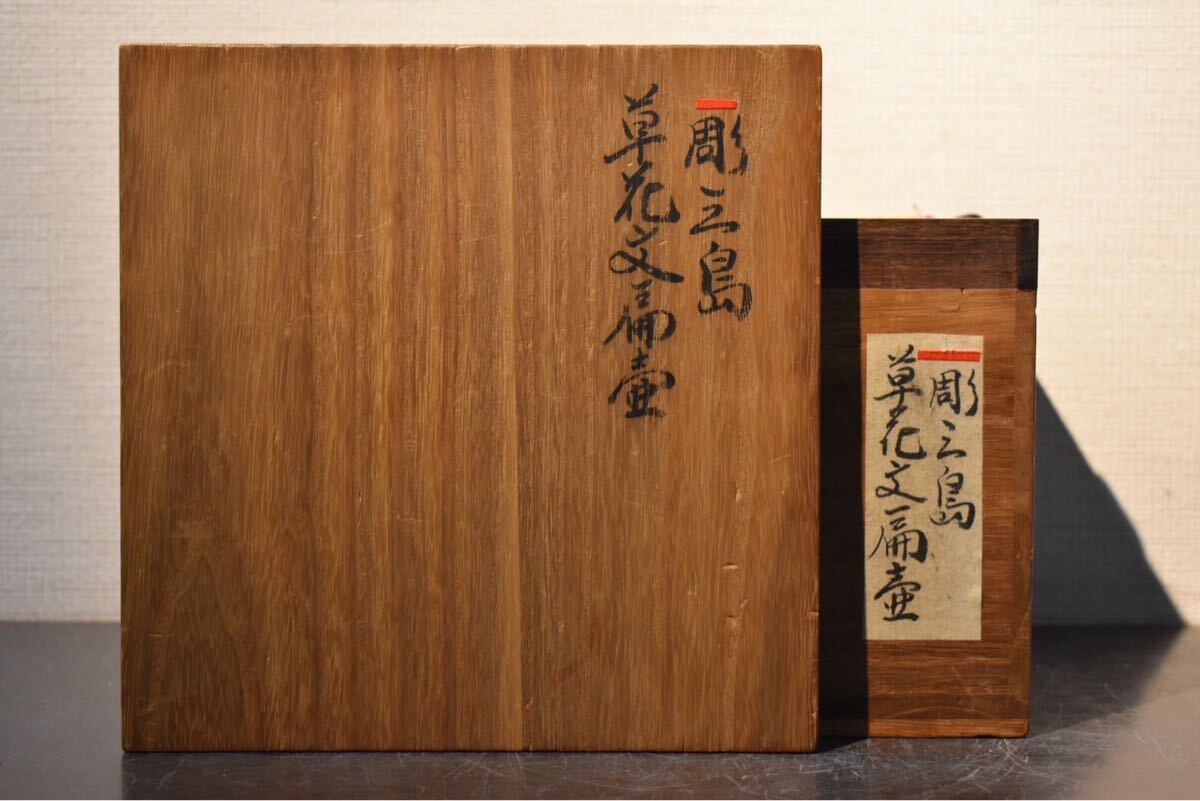 彫三島
草花文扁壷
彫三島
草花文扁壷